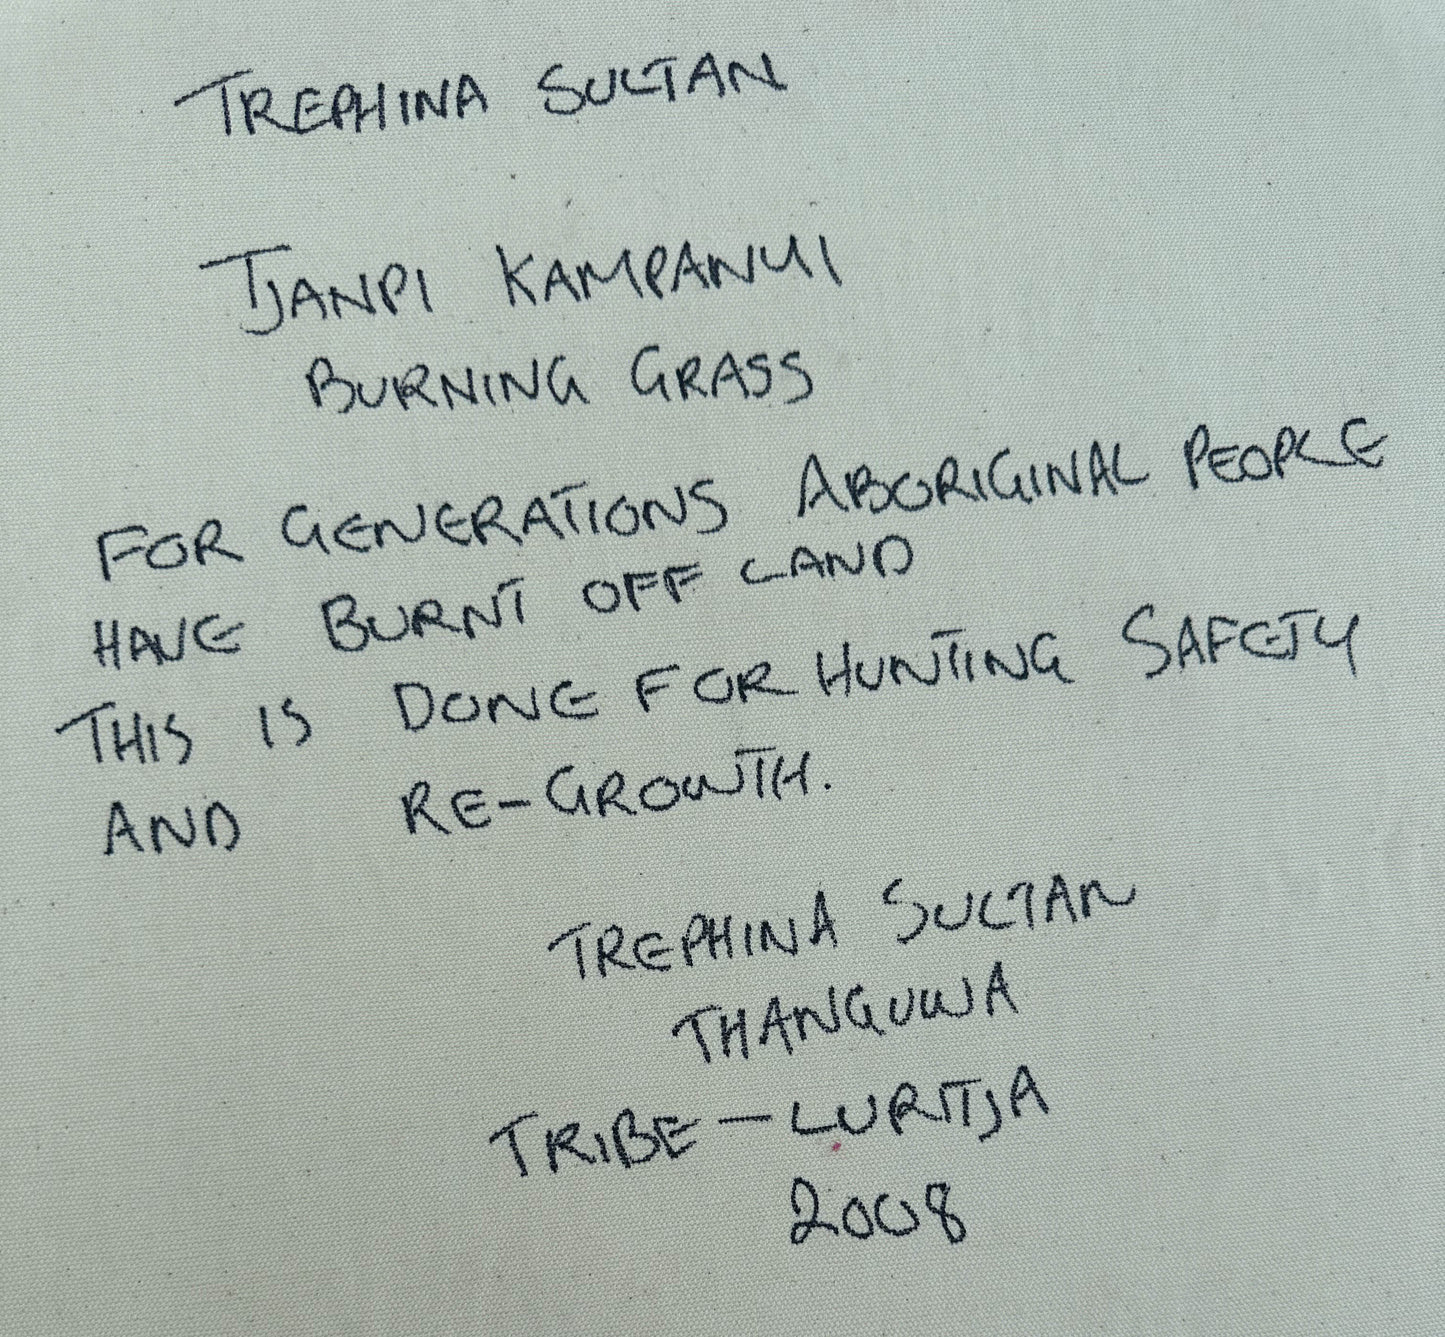 TREPHINA SULTAN
TJANPI KAMPANYI
BURNING GRASS
FOR GENERATIONS ABORIGINAL PEOPLE
HAVE BURNT OFF LAND
THIS IS DONE FOR HUNTING SAFETY
AND RE-GROWTH.
TREPHINA SULTAN
THANGUWA
TRIBE - LURITJA
2008